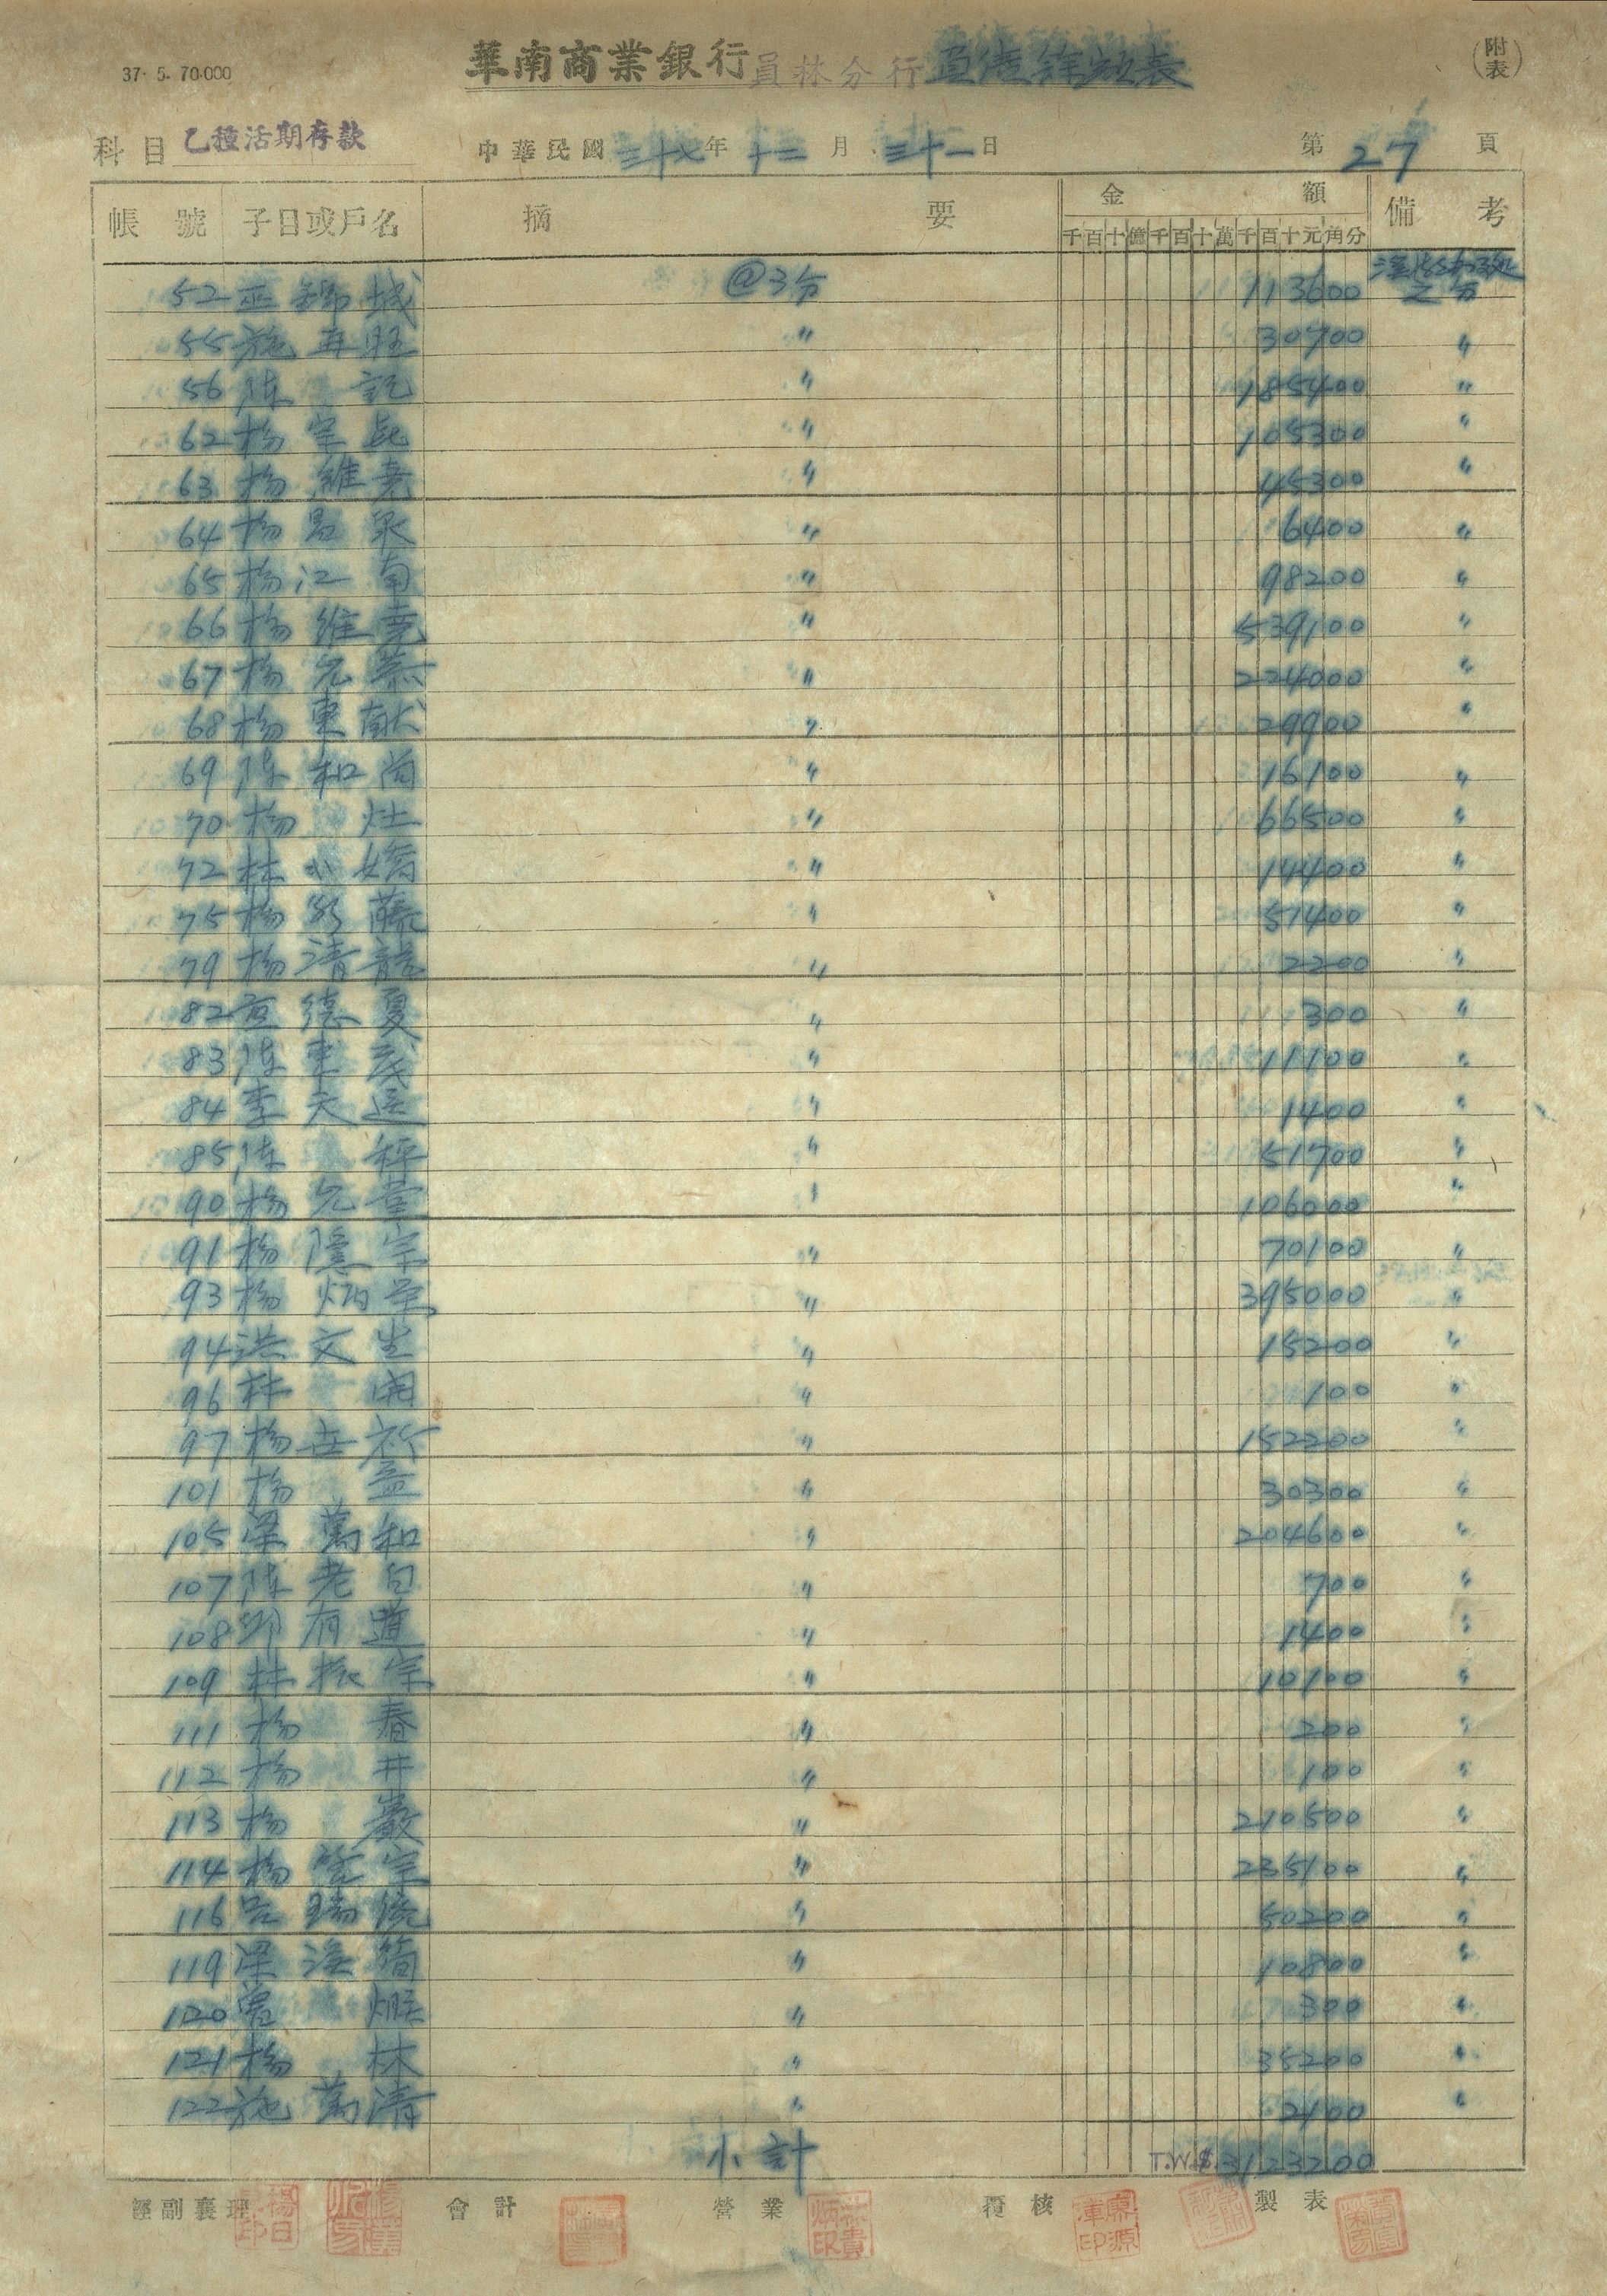 37. 5. 70.000
華南商業銀行員林分行 表
(附表)
科目 乙種活期存款 中華民國三十七年十二月三十一日 第27頁
帳號 子目或戶名 摘要 金額 備考
千百十億千百十萬千百十元角分
52 巫錦城 @3分 113600 之分
55 施再旺 〃 30700 〃
56 陳記 〃 185400 〃
62 楊宗 〃 105300 〃
63 楊維堯 〃 45300 〃
64 楊 泉 〃 6400 〃
65 楊江南 〃 98200 〃
66 楊維堯 〃 539100 〃
67 楊允恭 〃 224000 〃
68 楊東献 〃 29900 〃
69 陳和尚 〃 16100 〃
70 楊灶 〃 66500 〃
72 林 嬌 〃 14400 〃
75 楊 藤 〃 51400 〃
79 楊清龍 〃 2200 〃
82 德夏 〃 300 〃
83 陳東茂 〃 11100 〃
84 李天送 〃 1400 〃
85 陳秤 〃 51700 〃
90 楊允 〃 106000 〃
91 楊隱宗 〃 70100 〃
93 楊炳 〃 395000 〃
94 洪文生 〃 15200 〃
96 林 〃 100 〃
97 楊 〃 152200 〃
101 楊益 〃 30300 〃
105 梁萬和 〃 204600 〃
107 陳老白 〃 700 〃
108 有道 〃 1400 〃
109 林振宗 〃 10100 〃
111 楊春 〃 200 〃
112 楊井 〃 100 〃
113 楊巖 〃 210500 〃
114 楊 宗 〃 235100 〃
116 呂瑞 〃 50200 〃
119 梁 〃 10800 〃
120 曾 〃 300 〃
121 楊林 〃 35200 〃
122 施萬清 〃 2400 〃
小計 T.W.$ 3123200
經副襄理 會計 營業 覆核 製表